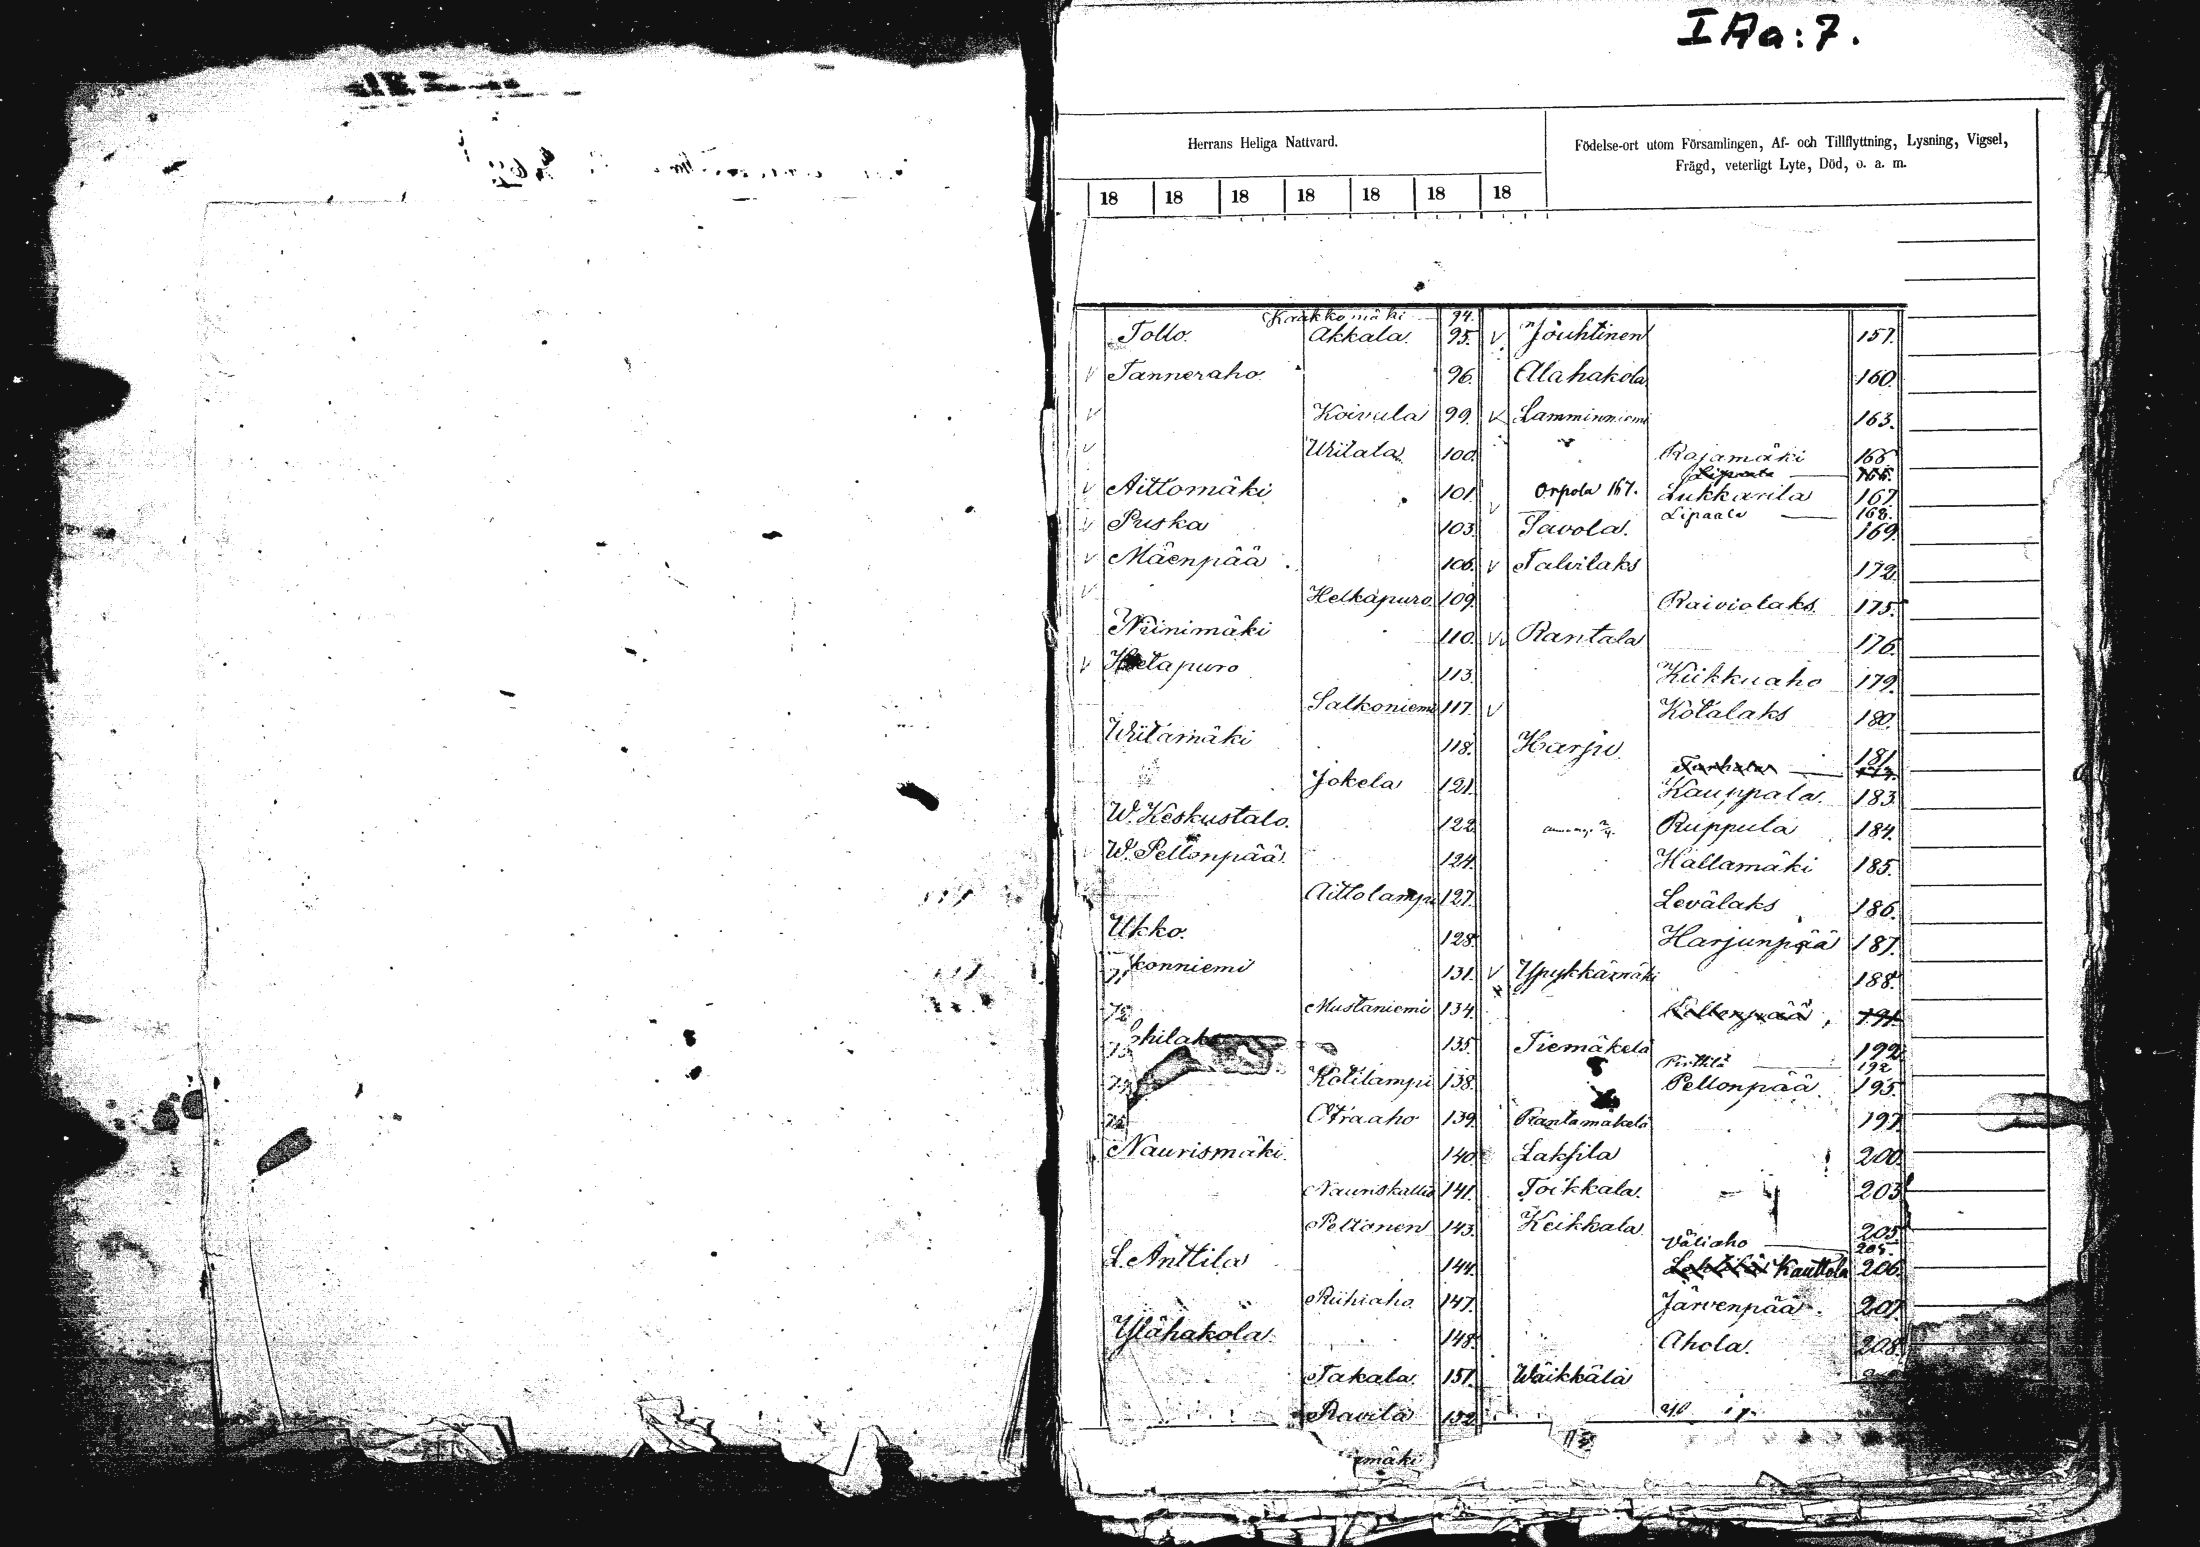 I Aa:7.
Herrans Heliga Nattvard.
Födelse-ort utom Församlingen, Af- och Tillflyttning, Lysning, Vigsel,
Frägd, veterligt Lyte, Död, o. a. m.
18 18 18 18 18 18 18
Kaakkomäki 94.
Tollo. Akkala. 95. V Jouhtinen 157.
V Tanneraho. 96. Alahakola 160.
V Koivula 99. V Lamminniemi 163.
V Wiitala 100. Rajamäki 166
Lipaala 166.
V Aittomäki 101. Orpola 167. Lukkarila 167
Lipaala 168.
V Puska 103. V Savola. 169.
V Mäenpää 106. V Talvilaks 172.
V Helkäpuro 109. Raiviolaks 175.
Niinimäki 110. V Rantala 176.
V Hietapuro 113. Kiikkuaho 179.
Salkoniemi 117. V Kotalaks 180.
Wiitamäki 118. Harju 181.
Jokela 121. Kauppala 183.
W. Keskustalo. 122. Ruppula 184.
W. Pellonpää. 124. Hallamäki 185.
Aittolampi 127. Levälaks 186.
Ukko. 128. Harjunpää 187.
konniemi 131. V Ypykkämäki 188.
Mustaniemi 134. 191.
135. Tiemäkelä 192.
Pirttilä 192
Kotilampi 138. Pellonpää 195.
Otraaho 139. Rantamäkelä 197.
Naurismäki. 140. Laksila 200.
Nauriskallio 141. Toikkala. 203
Peltonen 143. Keikkala 205
Väliaho 205.
L. Anttila 144. Kauttola 206.
Riihiaho 147. Järvenpää 207.
Ylähakola 148. Ahola. 208.
Takala 151. Wäikkälä
Ravila 152.
mäki